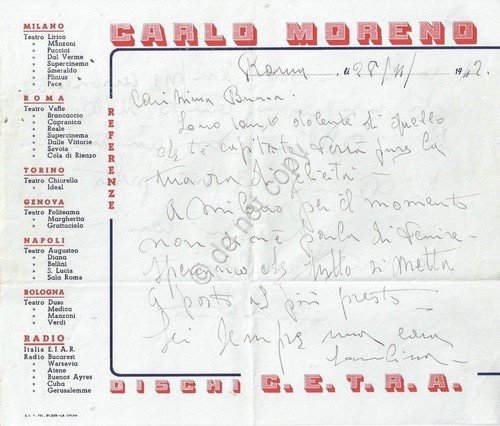 CARLO MORENO
MILANO
Teatro Lirico
» Manzoni
» Puccini
» Dal Verme
» Supercinema
» Smeraldo
» Plinius
» Pace
ROMA
Teatro Valle
» Brancaccio
» Capranica
» Reale
» Supercinema
» Dalle Vittorie
» Savoia
» Cola di Rienzo
TORINO
Teatro Chiarella
» Ideal
GENOVA
Teatro Politeama
» Margherita
» Grattacielo
NAPOLI
Teatro Augusteo
» Diana
» Bellini
» S. Lucia
» Sala Roma
BOLOGNA
Teatro Duse
» Medica
» Manzoni
» Verdi
RADIO
Italia E.I.A.R.
Radio Bucarest
» Warsavia
» Atene
» Buenos Ayres
» Cuba
» Gerusalemme
REFERENZE
Roma, 28/11/1942
dolente di quello
che t'è capitato verrà pure la
tua ora di felicità -
A Milano per il momento
non c'è parla di venire -
Speriamo che tutto si metta
a posto al più presto -
Sei sempre una cara
DISCHI C.E.T.R.A.
do not copy